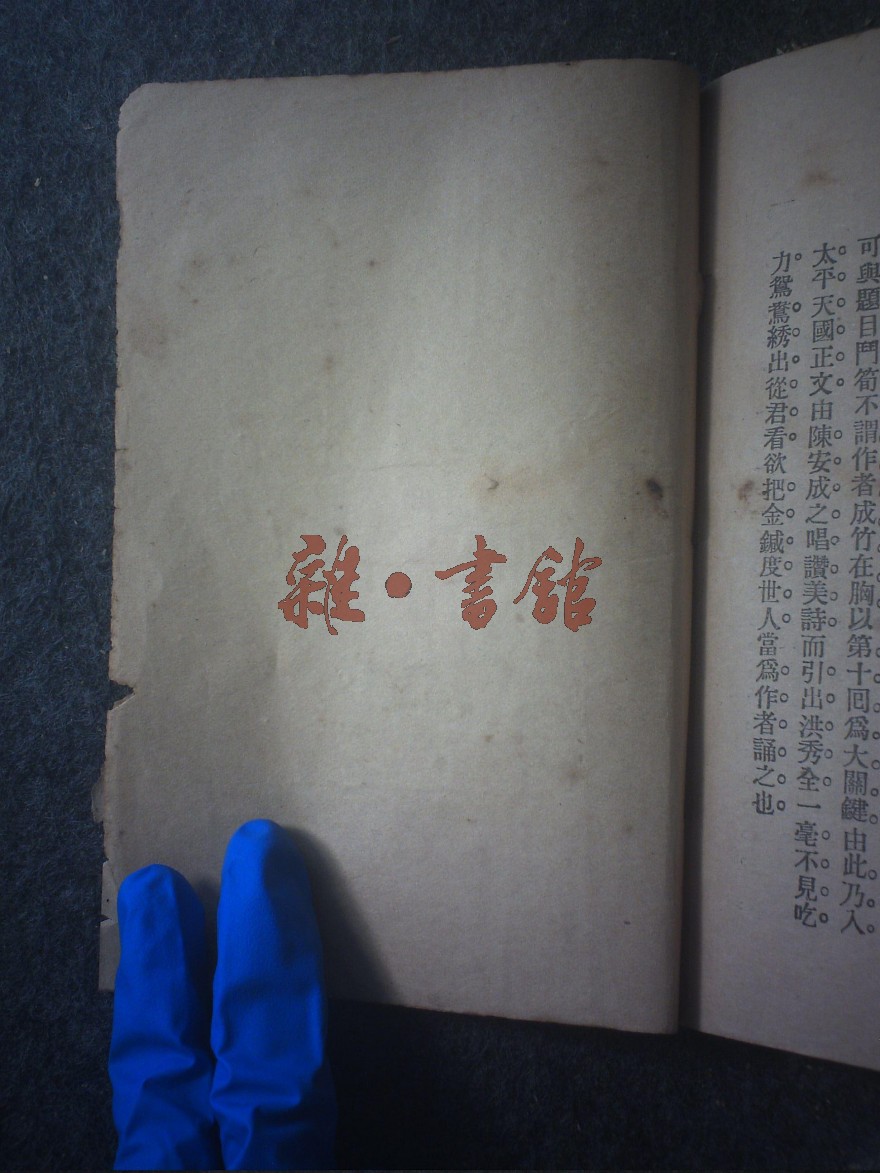 可與題目鬥筍不謂作者成竹在胸以第十囘爲大關鍵由此乃入
太平天國正文由陳安成之唱讚美詩而引出洪秀全一毫不見吃
力鴛鴦綉出從君看欲把金鍼度世人當爲作者誦之也
雜·書館